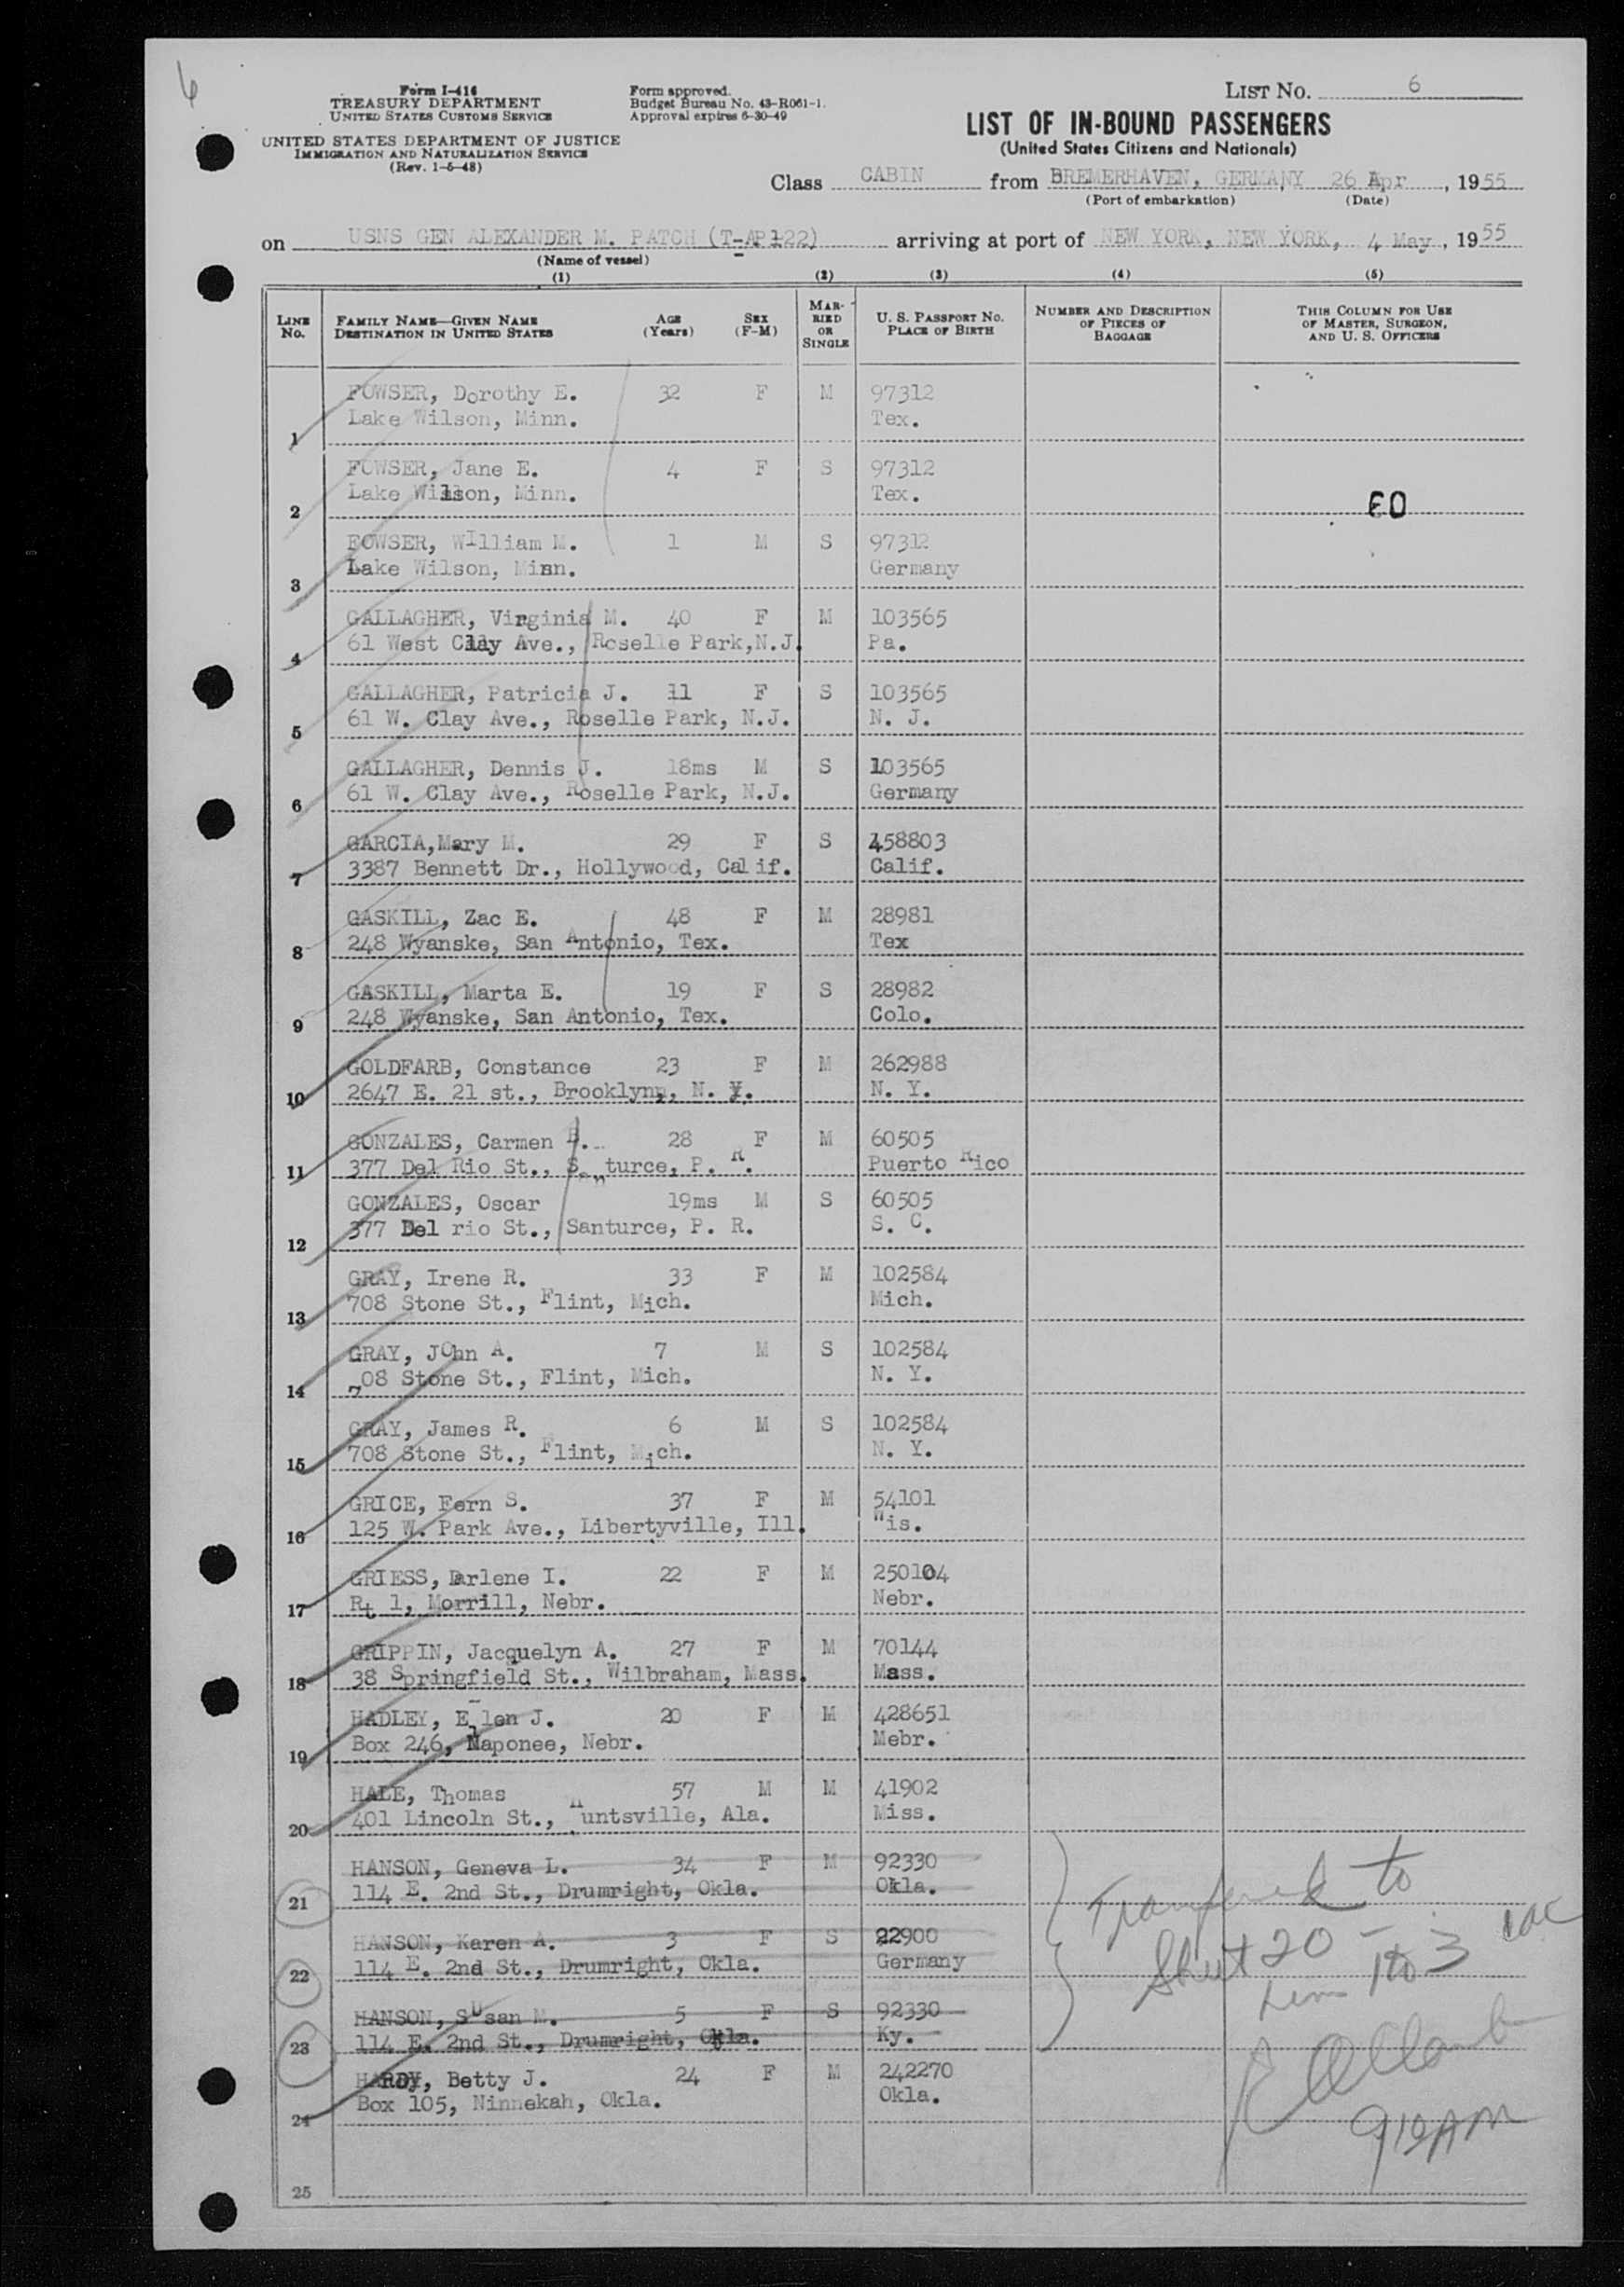 6
Form I-416
TREASURY DEPARTMENT
UNITED STATES CUSTOMS SERVICE
UNITED STATES DEPARTMENT OF JUSTICE
IMMIGRATION AND NATURALIZATION SERVICE
(Rev. 1-6-48)
Form approved.
Budget Bureau No. 43-R061-1.
Approval expires 6-30-49
LIST NO. 6
LIST OF IN-BOUND PASSENGERS
(United States Citizens and Nationals)
Class CABIN from BREMERHAVEN, GERMANY 26 Apr, 1955
(Port of embarkation) (Date)
on USNS GEN ALEXANDER M. PATCH (T-AP122) arriving at port of NEW YORK, NEW YORK, 4 May, 1955
(Name of vessel)
(1) (2) (3) (4) (5)
LINE NO. FAMILY NAME—GIVEN NAME DESTINATION IN UNITED STATES AGE (Years) SEX (F-M) MARRIED OR SINGLE U. S. PASSPORT NO. PLACE OF BIRTH NUMBER AND DESCRIPTION OF PIECES OF BAGGAGE THIS COLUMN FOR USE OF MASTER, SURGEON, AND U. S. OFFICERS
FOWSER, Dorothy E. 32 F M 97312
1 Lake Wilson, Minn. Tex.
FOWSER, Jane E. 4 F S 97312
2 Lake Wilson, Minn. Tex.
FOWSER, WIlliam M. 1 M S 97312
3 Lake Wilson, Minn. Germany
GALLAGHER, Virginia M. 40 F M 103565
4 61 West Clay Ave., Roselle Park,N.J. Pa.
GALLAGHER, Patricia J. 11 F S 103565
5 61 W. Clay Ave., Roselle Park, N.J. N. J.
GALLAGHER, Dennis J. 18ms M S 103565
6 61 W. Clay Ave., Roselle Park, N.J. Germany
GARCIA,Mary M. 29 F S 458803
7 3387 Bennett Dr., Hollywood, Calif. Calif.
GASKILL, Zac E. 48 F M 28981
8 248 Wyanske, San Antonio, Tex. Tex
GASKILL, Marta E. 19 F S 28982
9 248 Wyanske, San Antonio, Tex. Colo.
GOLDFARB, Constance 23 F M 262988
10 2647 E. 21 st., Brooklyn, N. Y. N. Y.
GONZALES, Carmen B. 28 F M 60505
11 377 Del Rio St., Santurce, P. R. Puerto Rico
GONZALES, Oscar 19ms M S 60505
12 377 Del rio St., Santurce, P. R. S. C.
GRAY, Irene R. 33 F M 102584
13 708 Stone St., Flint, Mich. Mich.
GRAY, JOhn A. 7 M S 102584
14 708 Stone St., Flint, Mich. N. Y.
GRAY, James R. 6 M S 102584
15 708 Stone St., Flint, Mich. N. Y.
GRICE, Fern S. 37 F M 54101
16 125 W. Park Ave., Libertyville, Ill. Wis.
GRIESS, Darlene I. 22 F M 250104
17 Rt 1, Morrill, Nebr. Nebr.
GRIPPIN, Jacquelyn A. 27 F M 70144
18 38 Springfield St., Wilbraham, Mass. Mass.
HADLEY, Ellen J. 20 F M 428651
19 Box 246, Naponee, Nebr. Mebr.
HALE, Thomas 57 M M 41902
20 401 Lincoln St., Huntsville, Ala. Miss.
HANSON, Geneva L. 34 F M 92330
21 114 E. 2nd St., Drumright, Okla. Okla.
HANSON, Karen A. 3 F S 22900
22 114 E. 2nd St., Drumright, Okla. Germany
HANSON, SUsan M. 5 F S 92330
23 114 E. 2nd St., Drumright, Okla. Ky.
HARDY, Betty J. 24 F M 242270
24 Box 105, Ninnekah, Okla. Okla.
25
Transfered to
Sheet 20 -
Line 1 to 3